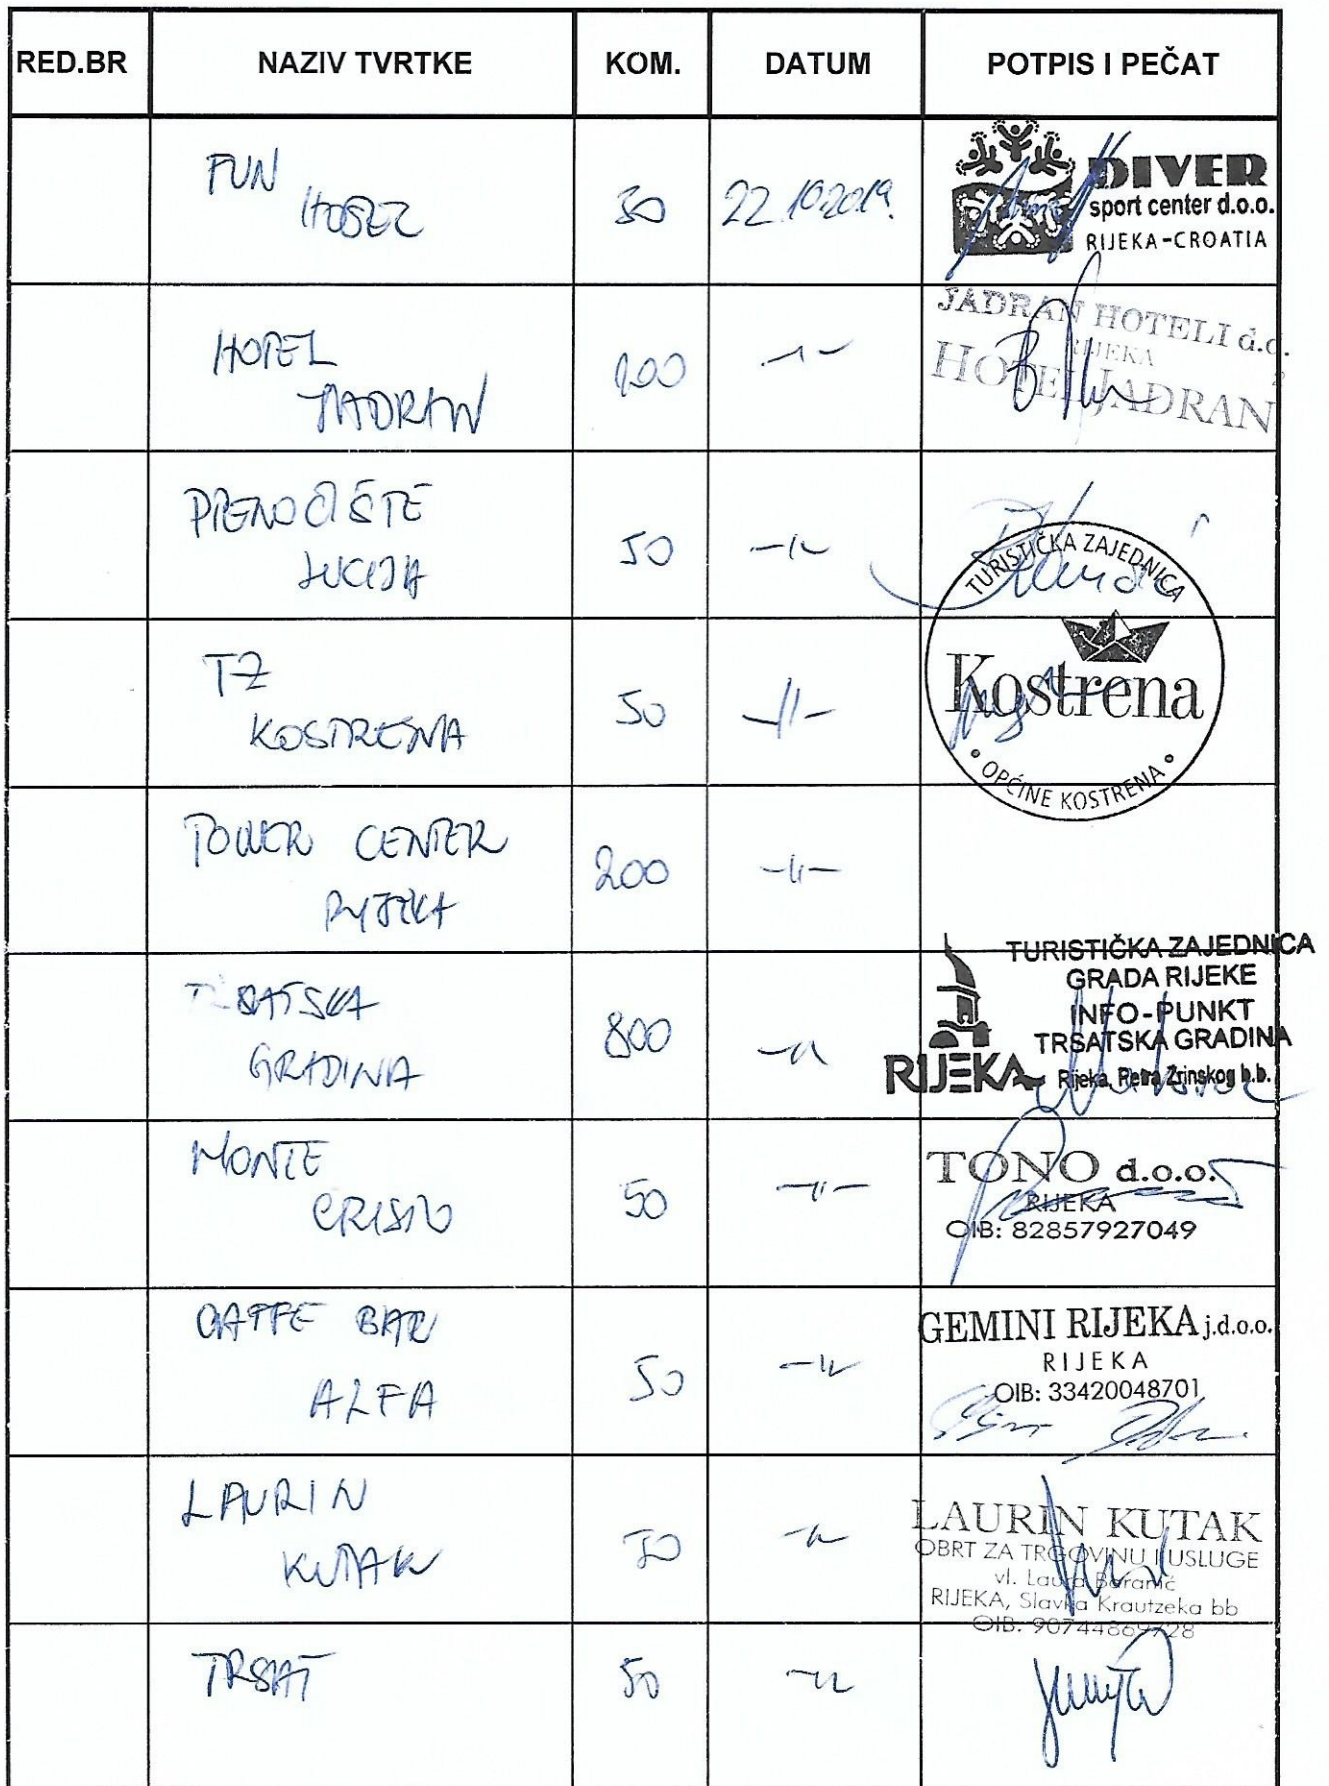 RED.BR NAZIV TVRTKE KOM. DATUM POTPIS I PEČAT
FUN
HOSTEL
50 22.10.2019.
DIVER
sport center d.o.o.
RIJEKA-CROATIA
HOTEL
JADRAN
200 -11-
JADRAN HOTELI d.d.
RIJEKA
HOTEL JADRAN
PRENOĆIŠTE
LUCIJA
50 -11-
TZ
KOSTRENA
50 -11-
TURISTIČKA ZAJEDNICA
Kostrena
OPĆINE KOSTRENA
TOWER CENTER
RIJEKA
200 -11-
TRSATSKA
GRADINA
800 -11-
TURISTIČKA ZAJEDNICA
GRADA RIJEKE
INFO-PUNKT
TRSATSKA GRADINA
RIJEKA Rijeka, Petra Zrinskog b.b.
MONTE
CRISTO
50 -11-
TONO d.o.o.
RIJEKA
OIB: 82857927049
CAFFE BAR
ALFA
50 -11-
GEMINI RIJEKA j.d.o.o.
RIJEKA
OIB: 33420048701
LAURIN
KUTAK
50 -11-
LAURIN KUTAK
OBRT ZA TRGOVINU I USLUGE
vl. Laura Baranić
RIJEKA, Slavka Krautzeka bb
OIB: 90744869728
TRSAT
50 -11-